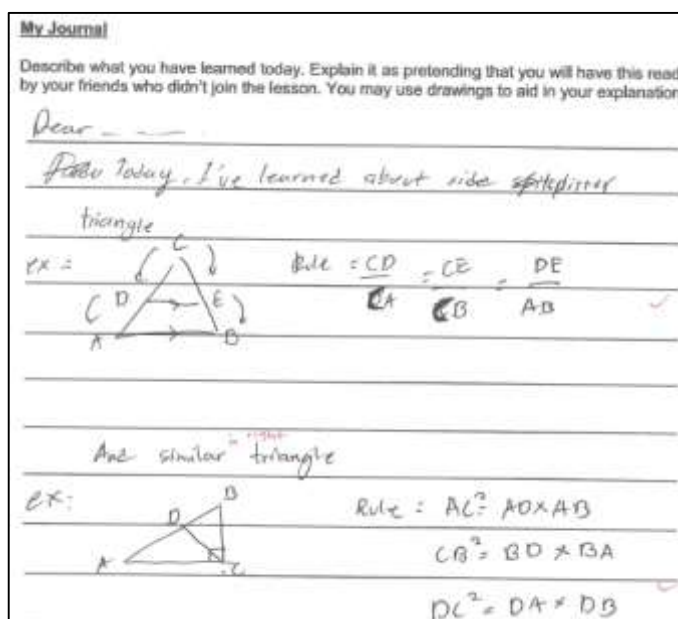 My Journal
Describe what you have learned today. Explain it as pretending that you will have this read
by your friends who didn't join the lesson. You may use drawings to aid in your explanation
Dear _ _ __
Today, I've learned about side
triangle
ex = Rule = CD/CA = CE/CB = DE/AB
C
D E
A B
And similar in right triangle
ex: Rule : AC² = AD×AB
B
D
A C
CB² = BD × BA
DC² = DA × DB